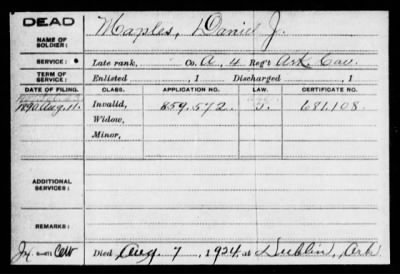 DEAD
NAME OF SOLDIER: Maples, Daniel J.
SERVICE: Late rank, Co. A, 4 Reg't Ark. Cav.
TERM OF SERVICE: Enlisted , 1 Discharged , 1
DATE OF FILING. CLASS. APPLICATION NO. LAW. CERTIFICATE NO.
1890 Aug. 11. Invalid, 859,572. J. 681,108.
Widow,
Minor,
ADDITIONAL SERVICES:
REMARKS:
Died Aug. 7, 1924, at Dublin, Ark